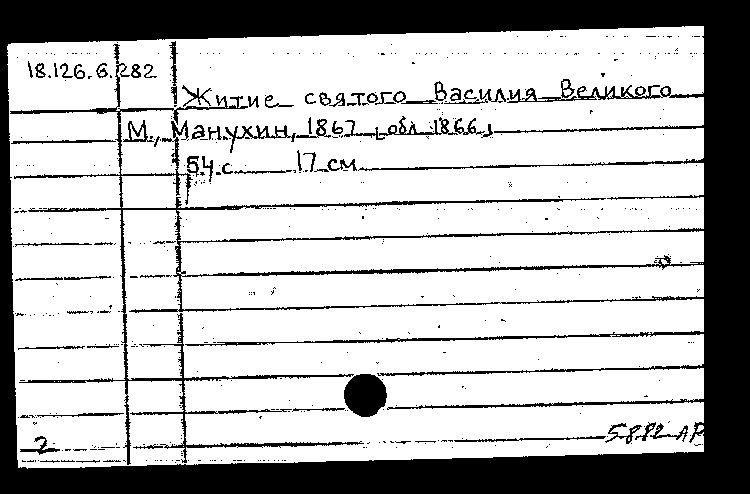 18.126.6.282
Житие святого Василия Великого
М., Манухин, 1867 [обл. 1866]
54 с. 17 см.
2 5.8.82 АР